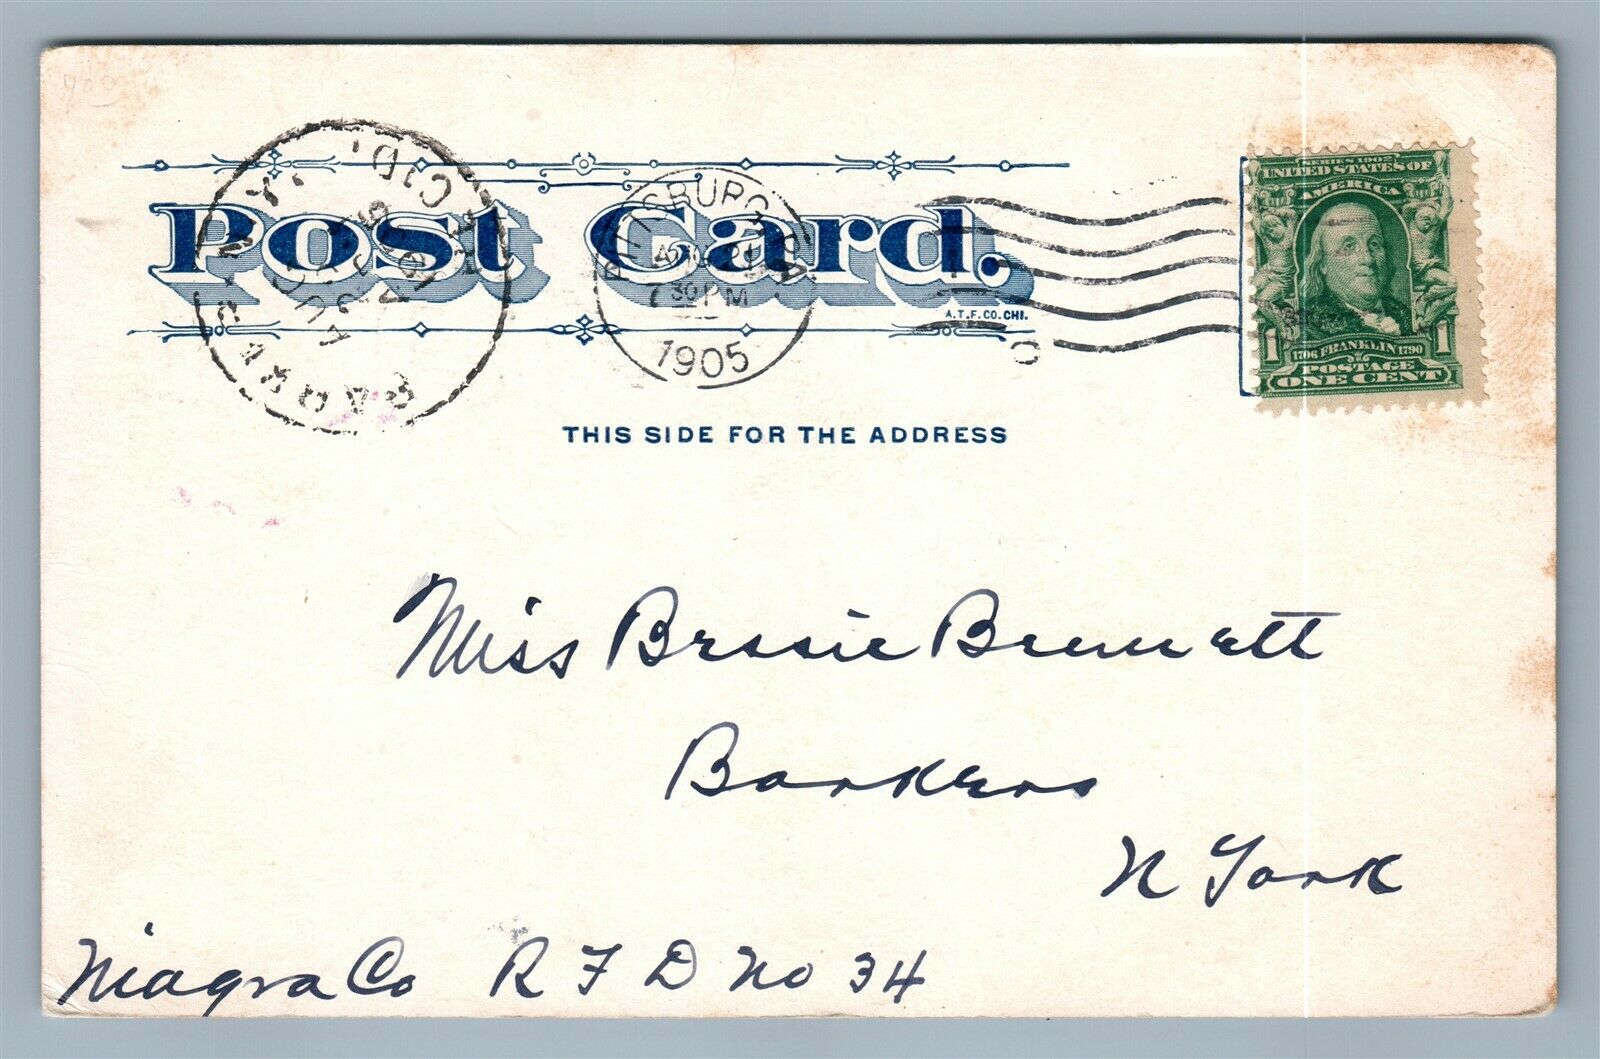 Post Card.
A.T.F. CO. CHI.
PITTSBURG, PA.
7 30 PM
1905
REC'D.
SERIES 1902
UNITED STATES OF
AMERICA
1 1
1706 FRANKLIN 1790
POSTAGE
ONE CENT
THIS SIDE FOR THE ADDRESS
Miss Bessie Bennett
Barkers
N York
Niagra Co R F D No 34